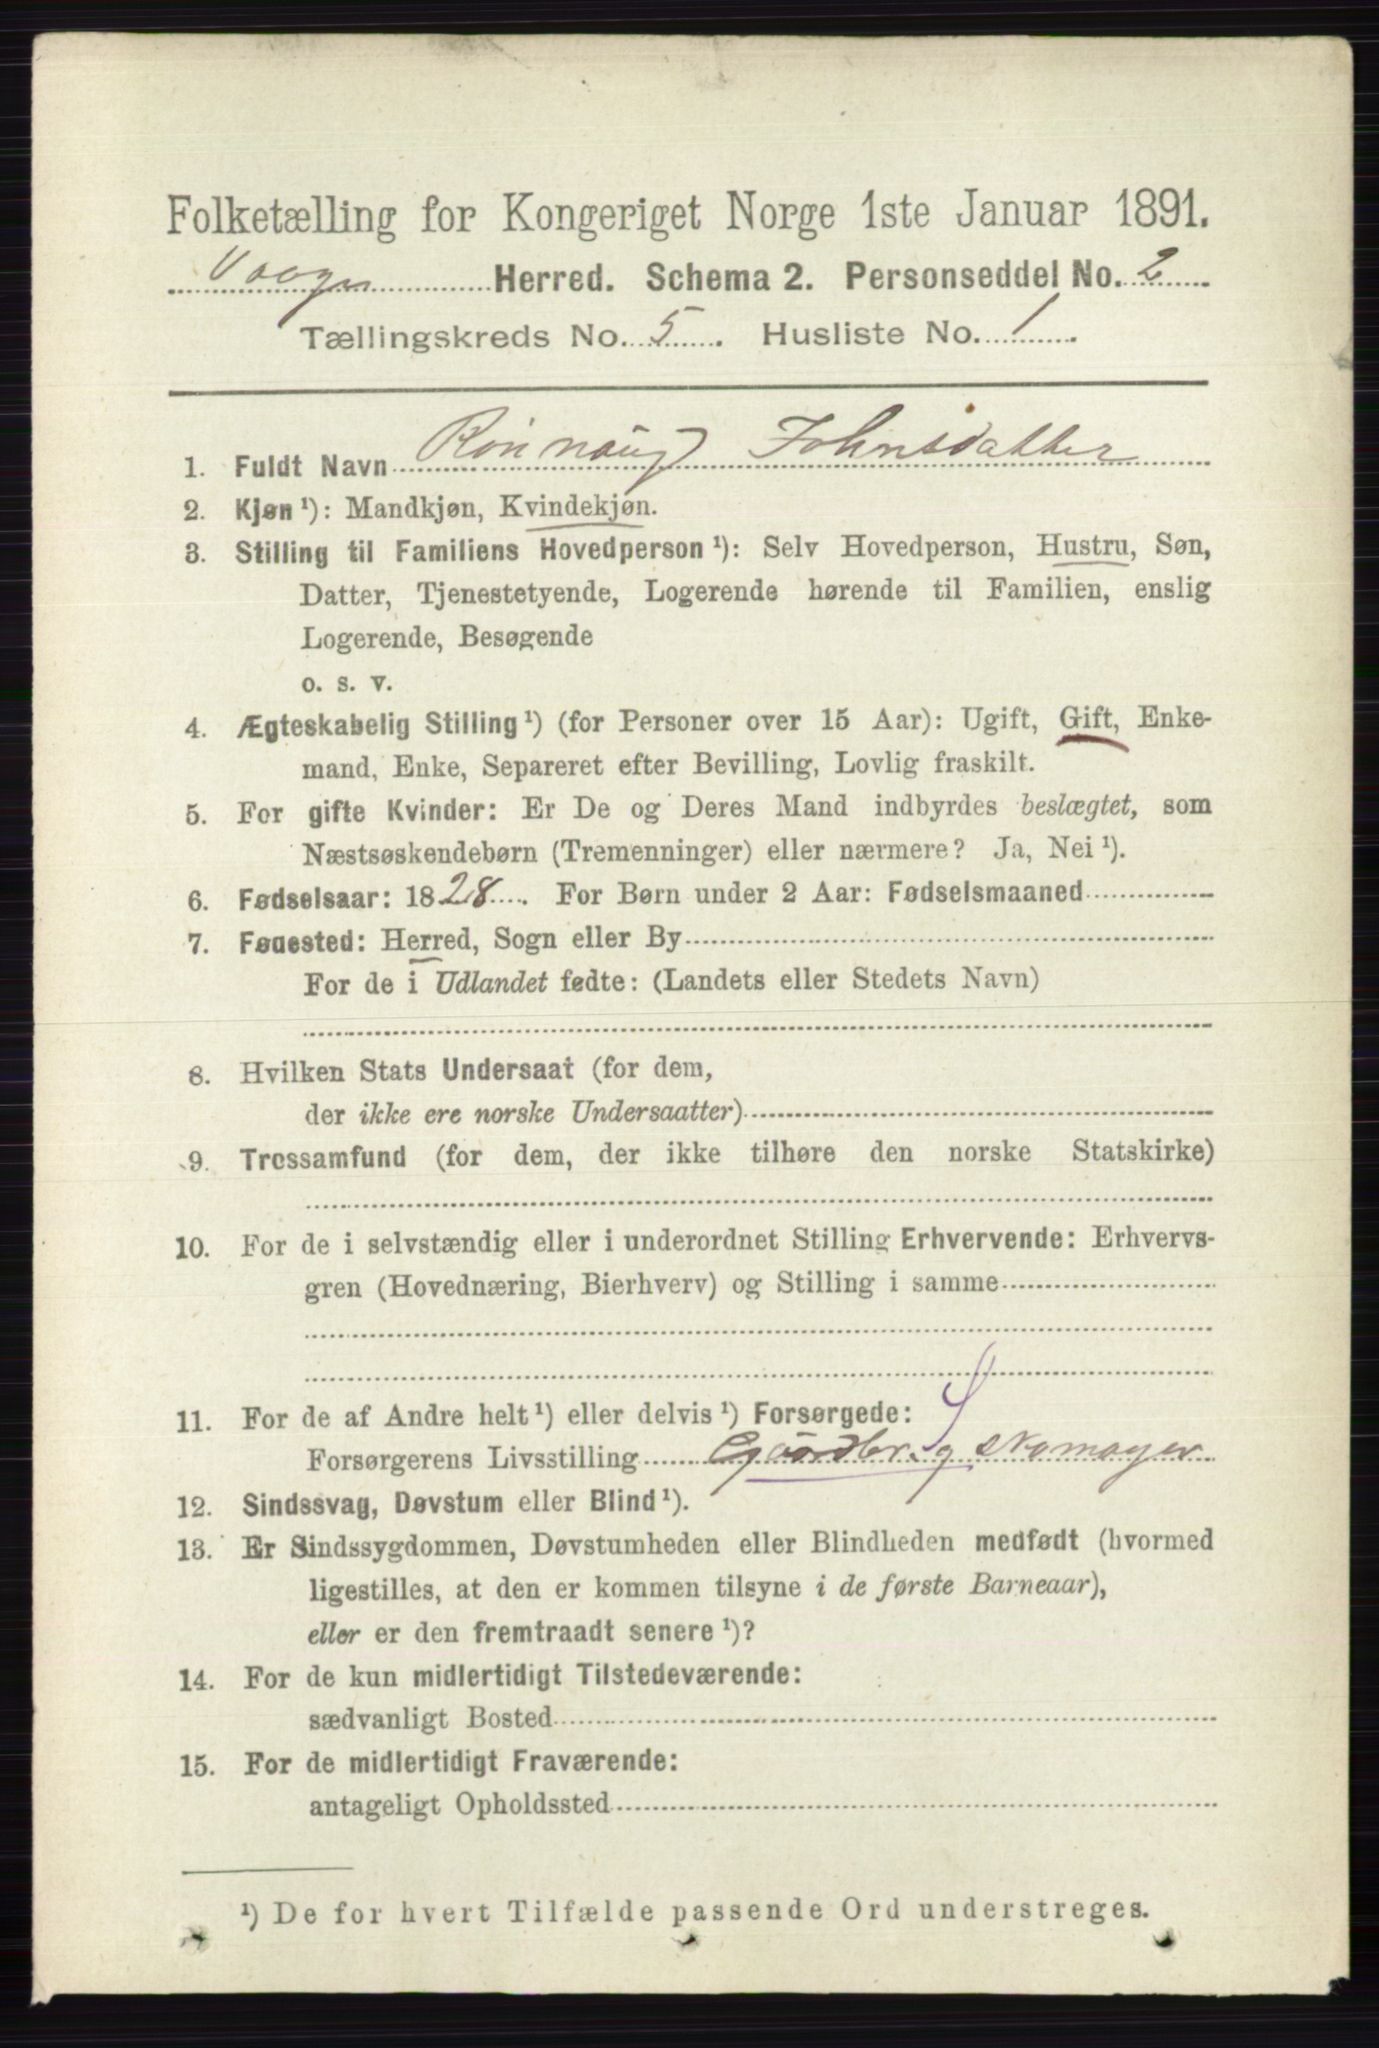 Folketælling for Kongeriget Norge 1ste Januar 1891.
Vaage Herred. Schema 2. Personseddel No. 2
Tællingskreds No. 5. Husliste No. 1.
1. Fuldt Navn Rönnaug Johnsdatter
2. Kjøn ¹): Mandkjøn, Kvindekjøn.
3. Stilling til Familiens Hovedperson ¹): Selv Hovedperson, Hustru, Søn,
Datter, Tjenestetyende, Logerende hørende til Familien, enslig
Logerende, Besøgende
o. s. v.
4. Ægteskabelig Stilling ¹) (for Personer over 15 Aar): Ugift, Gift, Enke-
mand, Enke, Separeret efter Bevilling, Lovlig fraskilt.
5. For gifte Kvinder: Er De og Deres Mand indbyrdes beslægtet, som
Næstsøskendebørn (Tremenninger) eller nærmere? Ja, Nei ¹).
6. Fødselsaar: 1828. For Børn under 2 Aar: Fødselsmaaned
7. Fødested: Herred, Sogn eller By
For de i Udlandet fødte: (Landets eller Stedets Navn)
8. Hvilken Stats Undersaat (for dem,
der ikke ere norske Undersaatter)
9. Trossamfund (for dem, der ikke tilhøre den norske Statskirke)
10. For de i selvstændig eller i underordnet Stilling Erhvervende: Erhvervs-
gren (Hovednæring, Bierhverv) og Stilling i samme
11. For de af Andre helt ¹) eller delvis ¹) Forsørgede:
Forsørgerens Livsstilling Gaardbr. og Skomager
12. Sindssvag, Døvstum eller Blind ¹).
13. Er Sindssygdommen, Døvstumheden eller Blindheden medfødt (hvormed
ligestilles, at den er kommen tilsyne i de første Barneaar),
eller er den fremtraadt senere ¹)?
14. For de kun midlertidigt Tilstedeværende:
sædvanligt Bosted
15. For de midlertidigt Fraværende:
antageligt Opholdssted
¹) De for hvert Tilfælde passende Ord understreges.